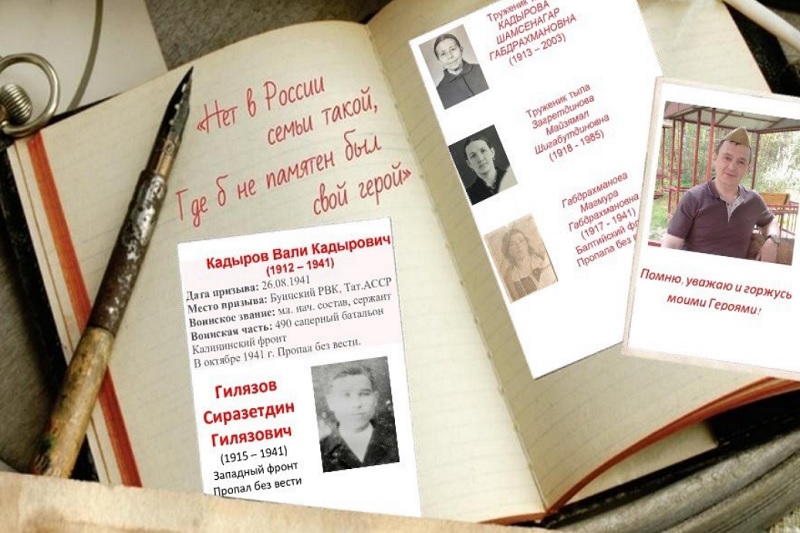 «Нет в России
семьи такой,
Где б не памятен был
свой герой»
Кадыров Вали Кадырович
(1912 – 1941)
Дата призыва: 26.08.1941
Место призыва: Буинский РВК, Тат.АССР
Воинское звание: мл. нач. состав, сержант
Воинская часть: 490 саперный батальон
Калининский фронт
В октябре 1941 г. Пропал без вести.
Гилязов
Сиразетдин
Гилязович
(1915 – 1941)
Западный фронт
Пропал без вести
Труженик
КАДЫРОВА
ШАМСЕНАГАР
ГАБДРАХМАНОВНА
(1913 – 2003)
Труженик тыла
Загретдинова
Майзямал
Шигабутдиновна
(1918 - 1985)
Габдрахманова
Магмура
Габдрахмановна
(1917 - 1941)
Балтийский
Пропала без
Помню, уважаю и горжусь
моими Героями!